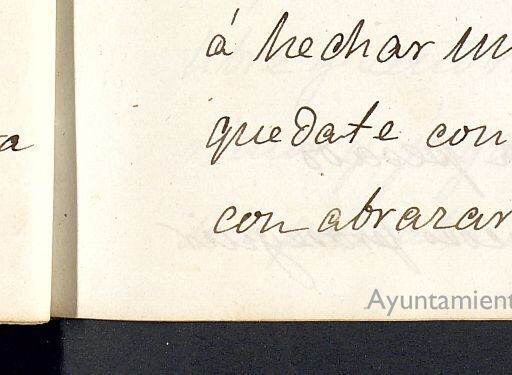 a
á hechar un
quedate con
con abrazar
Ayuntamient